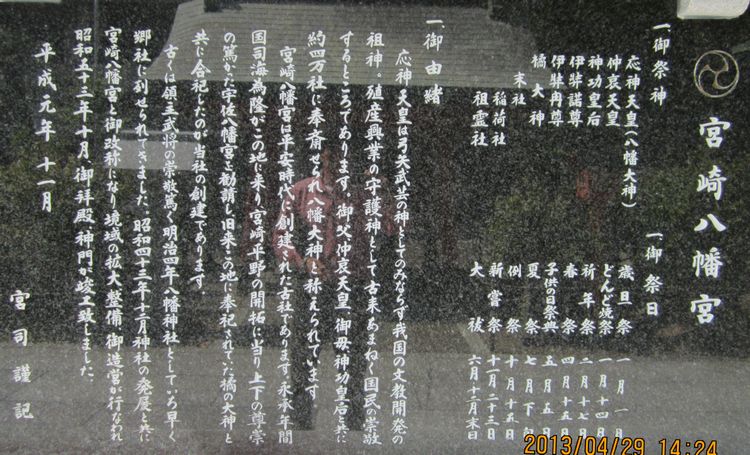 宮崎八幡宮
一、御祭神
応神天皇(八幡大神)
仲哀天皇
神功皇后
伊弉諾尊
伊弉冉尊
橘大神
末社
稲荷社
祖霊社
一、御祭日
歳旦祭 一月一日
どんど焼祭 一月十四日
祈年祭 二月十七日
春祭 四月十五日
子供の日祭典 五月五日
夏祭 七月下旬
例祭 十月十五日
新嘗祭 十一月二十三日
大祓 六月十二月末日
一、御由緒
応神天皇は弓矢武芸の神としてのみならず我国の文教開発の
祖神。殖産興業の守護神として古来あまねく国民の崇敬
するところであります。御父仲哀天皇 御母神功皇后と共に
約四万社に奉斎せられ八幡大神と称えられています
宮崎八幡宮は平安時代に創建された古社であります永承年間
国司海為隆がこの地に来り宮崎平野の開拓に当り上下の尊崇
の篤かった宇佐八幡宮を勧請し旧来この地に奉祀されていた橘の大神と
共に合祀したのが当社の創建であります。
古くは領主武将の崇敬篤く明治四年八幡神社としていち早く
郷社に列せられてきました。昭和四十三年十二月神社の発展と共に
宮崎八幡宮と御改称になり境域の拡大整備 御造営が行なわれ
昭和五十三年十月、御拝殿、神門が竣工致しました。
平成元年十一月
宮司謹記
2013/04/29 14:24